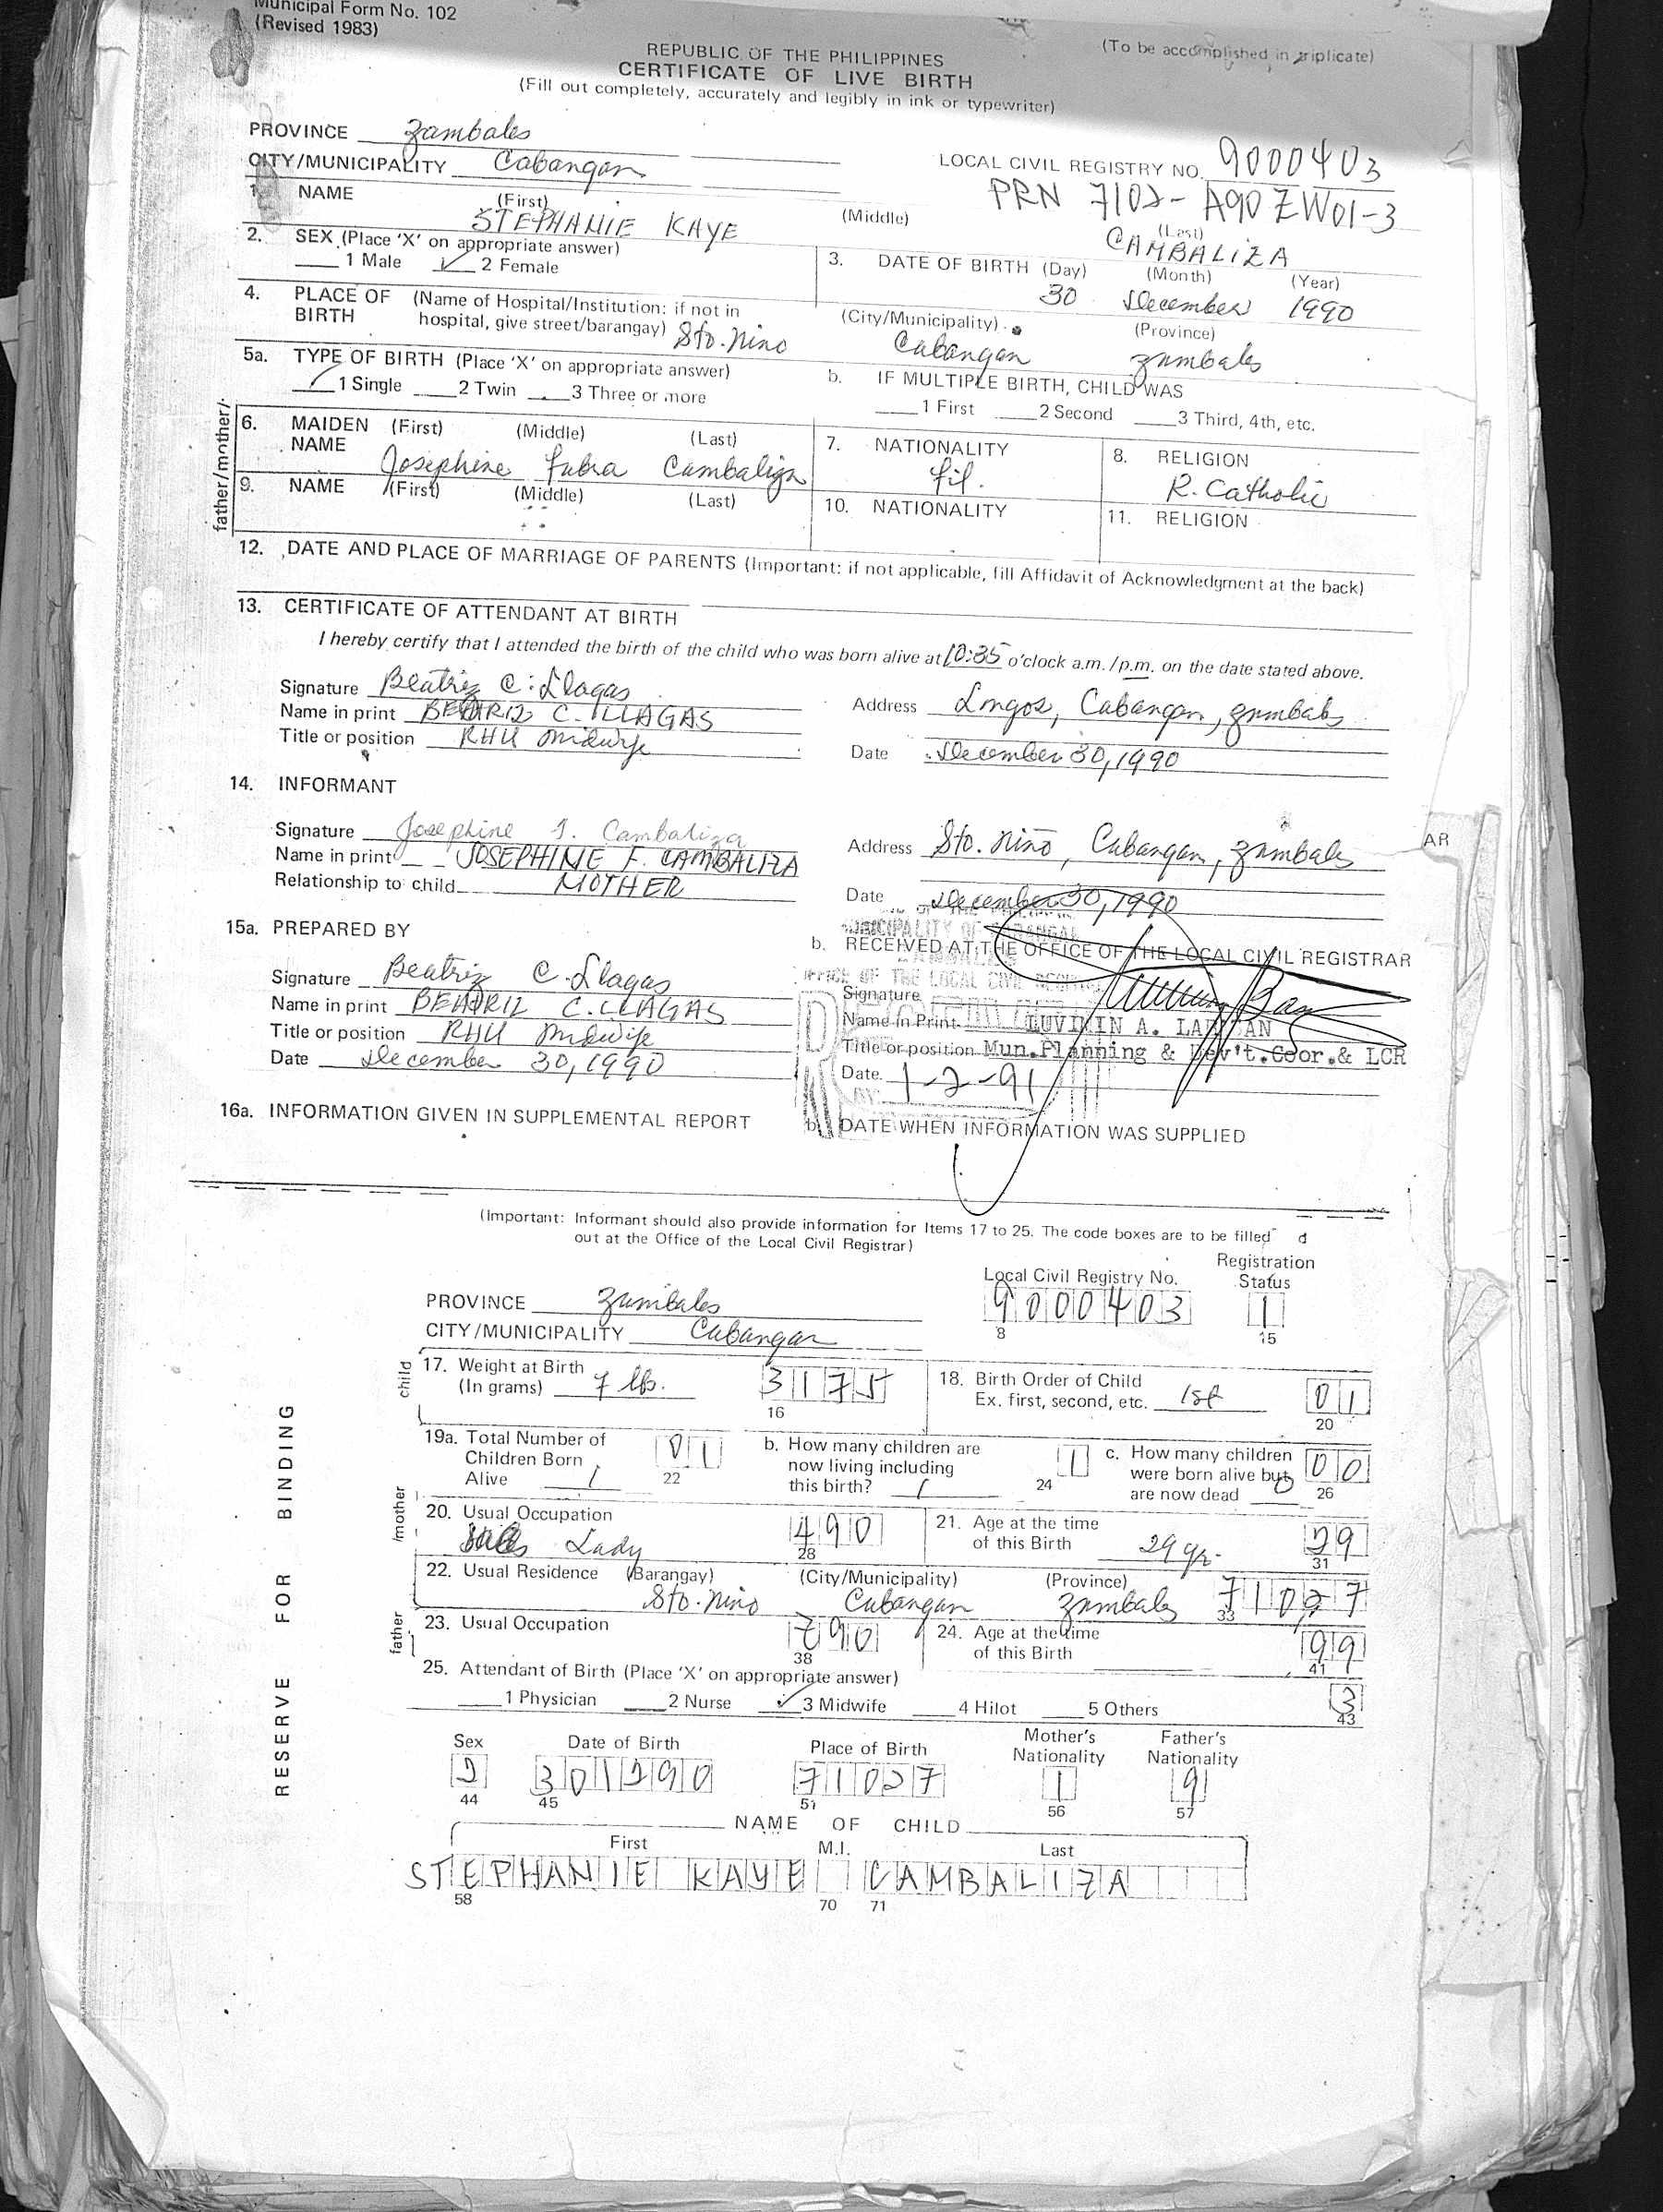 Municipal Form No. 102
(Revised 1983)
(To be accomplished in triplicate)
REPUBLIC OF THE PHILIPPINES
CERTIFICATE OF LIVE BIRTH
(Fill out completely, accurately and legibly in ink or typewriter)
PROVINCE Zambales
CITY/MUNICIPALITY Cabangan
LOCAL CIVIL REGISTRY NO. 9000403
PRN 7102-A90ZW01-3
1. NAME (First) (Middle) (Last)
STEPHANIE KAYE CAMBALIZA
2. SEX (Place 'X' on appropriate answer)
1 Male ✓ 2 Female
3. DATE OF BIRTH (Day) (Month) (Year)
30 December 1990
4. PLACE OF BIRTH (Name of Hospital/Institution: if not in hospital, give street/barangay) (City/Municipality) (Province)
Sto. Nino Cabangan Zambales
5a. TYPE OF BIRTH (Place 'X' on appropriate answer)
✓ 1 Single 2 Twin 3 Three or more
b. IF MULTIPLE BIRTH, CHILD WAS
1 First 2 Second 3 Third, 4th, etc.
father/mother/
6. MAIDEN NAME (First) (Middle) (Last)
Josephine Cambaliza
7. NATIONALITY
Fil.
8. RELIGION
R. Catholic
9. NAME (First) (Middle) (Last)
10. NATIONALITY
11. RELIGION
12. DATE AND PLACE OF MARRIAGE OF PARENTS (Important: if not applicable, fill Affidavit of Acknowledgment at the back)
13. CERTIFICATE OF ATTENDANT AT BIRTH
I hereby certify that I attended the birth of the child who was born alive at 10:35 o'clock a.m./p.m. on the date stated above.
Signature Beatriz C. Llagas
Name in print BEATRIZ C. LLAGAS
Title or position RHU Midwife
Address Longos, Cabangan, Zambales
Date December 30, 1990
14. INFORMANT
Signature Josephine F. Cambaliza
Name in print JOSEPHINE F. CAMBALIZA
Relationship to child MOTHER
Address Sto. Niño, Cabangan, Zambales
Date December 30, 1990
AR
15a. PREPARED BY
Signature Beatriz C. Llagas
Name in print BEATRIZ C. LLAGAS
Title or position RHU Midwife
Date December 30, 1990
MUNICIPALITY OF CABANGAN
b. RECEIVED AT THE OFFICE OF THE LOCAL CIVIL REGISTRAR
OFFICE OF THE LOCAL CIVIL REGISTRAR
Signature
Name in Print A.
Title or position Mun.Planning & Dev't.Coor.& LCR
Date 1-2-91
16a. INFORMATION GIVEN IN SUPPLEMENTAL REPORT
b. DATE WHEN INFORMATION WAS SUPPLIED
(Important: Informant should also provide information for Items 17 to 25. The code boxes are to be filled
out at the Office of the Local Civil Registrar)
PROVINCE Zambales
CITY/MUNICIPALITY Cabangan
Local Civil Registry No.
9000403
8
Registration Status
1
15
child
17. Weight at Birth (In grams) 7 lbs.
3175
16
18. Birth Order of Child
Ex. first, second, etc. 1st
01
20
19a. Total Number of Children Born Alive 1
01
22
b. How many children are now living including this birth? 1
1
24
c. How many children were born alive but are now dead 0
00
26
mother
20. Usual Occupation
Sales Lady
490
28
21. Age at the time of this Birth 29 yr.
29
31
22. Usual Residence (Barangay) (City/Municipality) (Province)
Sto. Nino Cabangan Zambales
71027
33
father
23. Usual Occupation
790
38
24. Age at the time of this Birth
99
41
25. Attendant of Birth (Place 'X' on appropriate answer)
1 Physician 2 Nurse ✓ 3 Midwife 4 Hilot 5 Others
3
43
Sex
2
44
Date of Birth
301290
45
Place of Birth
71027
51
Mother's Nationality
1
56
Father's Nationality
9
57
NAME OF CHILD
First M.I. Last
STEPHANIE KAYE CAMBALIZA
58 70 71
RESERVE FOR BINDING